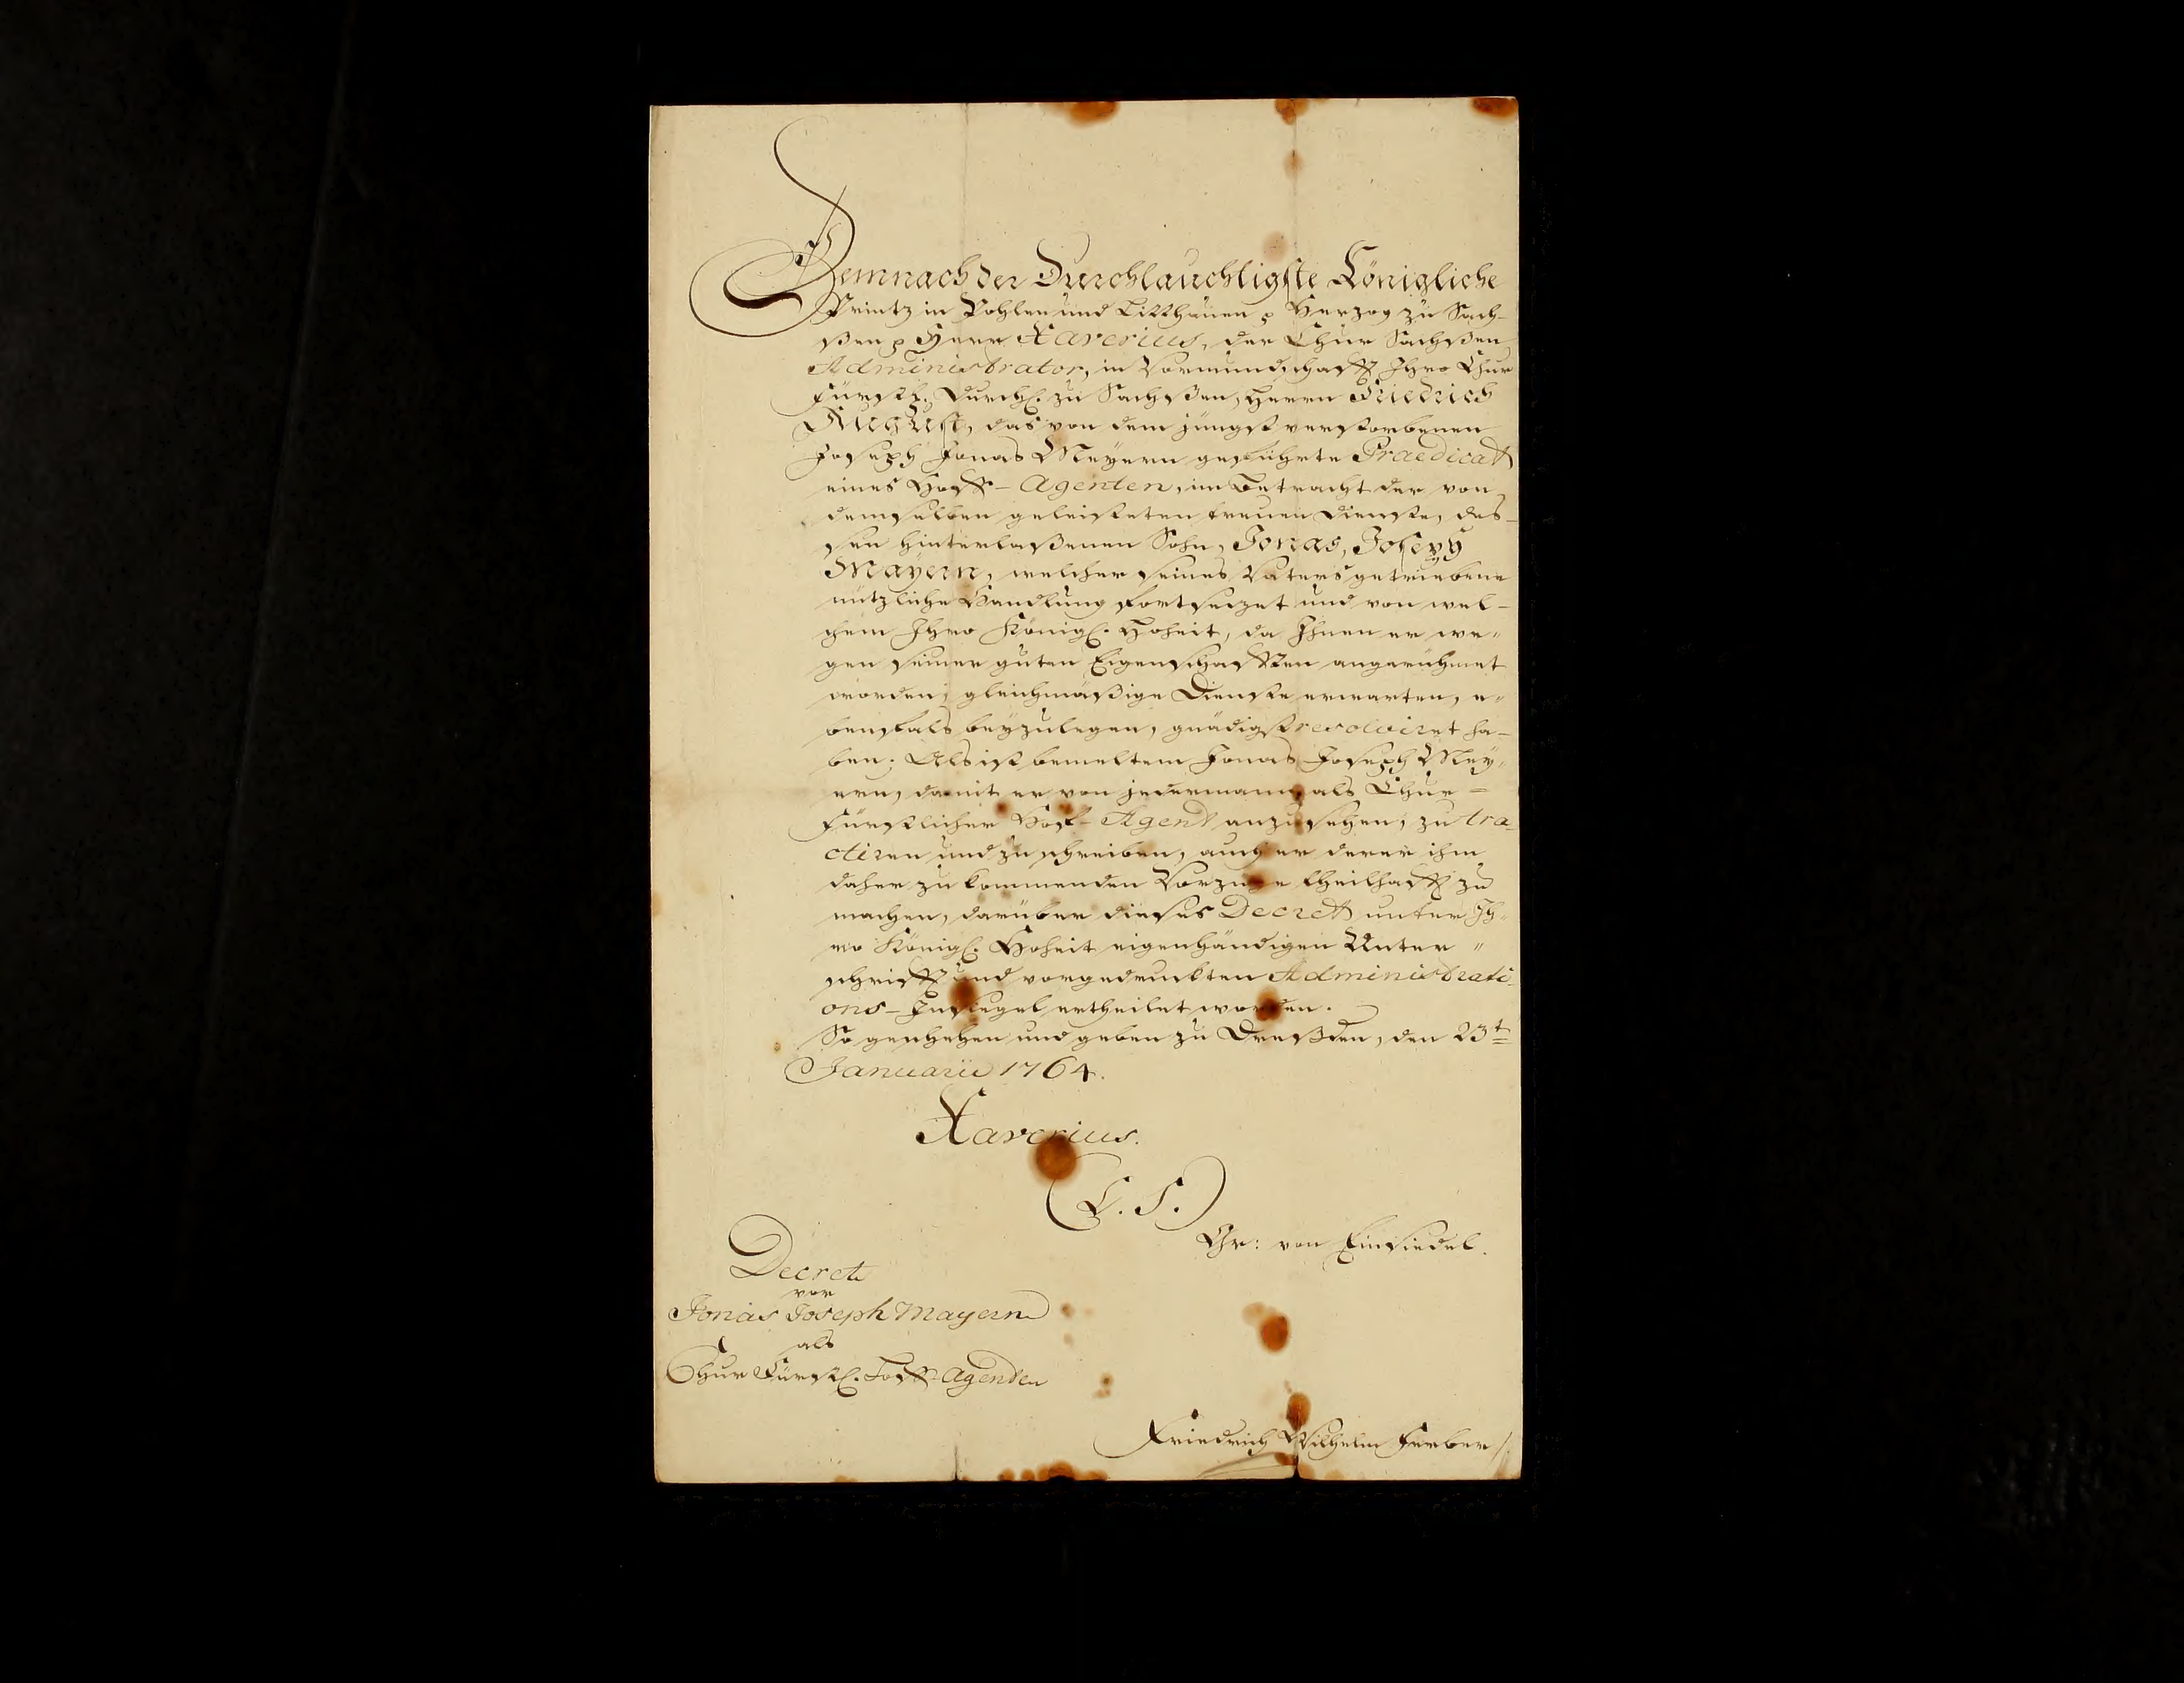 Demnach der Durchlauchtigste Königliche
Printz in Pohlen und Litthauen p Herzog zu Sach-
ßen p Herr Xaverius, der Chur Sachßen
Administrator, in Vormundschafft Ihro Chur
Fürstl. Durchl. zu Sachßen, Herrn Friedrich
August, das von dem jüngst verstorbenen
Joseph Jonas Meyern geführte Praedicat
eines Hoff-Agenten, in Betracht der von
demselben geleisteten treuen Dienste, des-
sen hinterlaßenen Sohn, Jonas, Joseph
Mayern, welcher seines Vaters getriebene
nützliche Handlung fortsezet und von wel-
chem Ihro Königl. Hoheit, da Ihnen er we"
gen seiner guten Eigenschafften angerühmet
worden, gleichmäßige Dienste erwarten, e"
benfals beyzulegen, gnädigst resolviret ha-
ben; Als ist bemeltem Jonas Joseph Mey"
ern, damit er von jedermann als Chur-
Fürstlicher Hof-Agent anzusehen, zu tra-
ctiren und zu schreiben, auch er derer ihm
daher zu kommenden Vorzüge theilhafft zu
machen, darüber dieses Decret unter Ih-
ro Königl. Hoheit eigenhändigen Unter"
schrifft und vorgedruckten Administrati-
ons-Insiegel ertheilet worden.
So geschehen und geben zu Dreßden, den 23t
Januarii 1764.
Xaverius.
(L. S.)
Gr: von Einsiedel.
Decret
vor
Jonas Joseph Mayern
als
Chur Fürstl. Hoff-Agenten
Friedrich Wilhelm Ferber